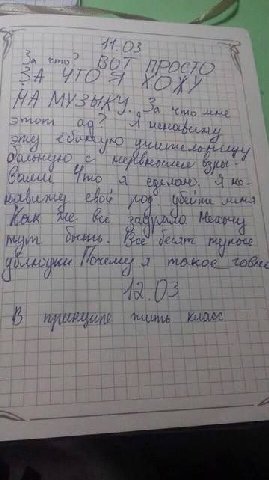 11.03
За что? ВОТ ПРОСТО
ЗА ЧТО Я ХОЖУ
НА МУЗЫКУ. За что мне
этот ад? Я ненавижу
эту ебаную учительницу
больную с нервными взры-
вами. Что я сделаю. Я не-
навижу свой род убейте меня
Как же все заебало Немогу
тут быть. Все бесят тупые
ублюдки Почему я такое говно
12.03
В принципе жить класс